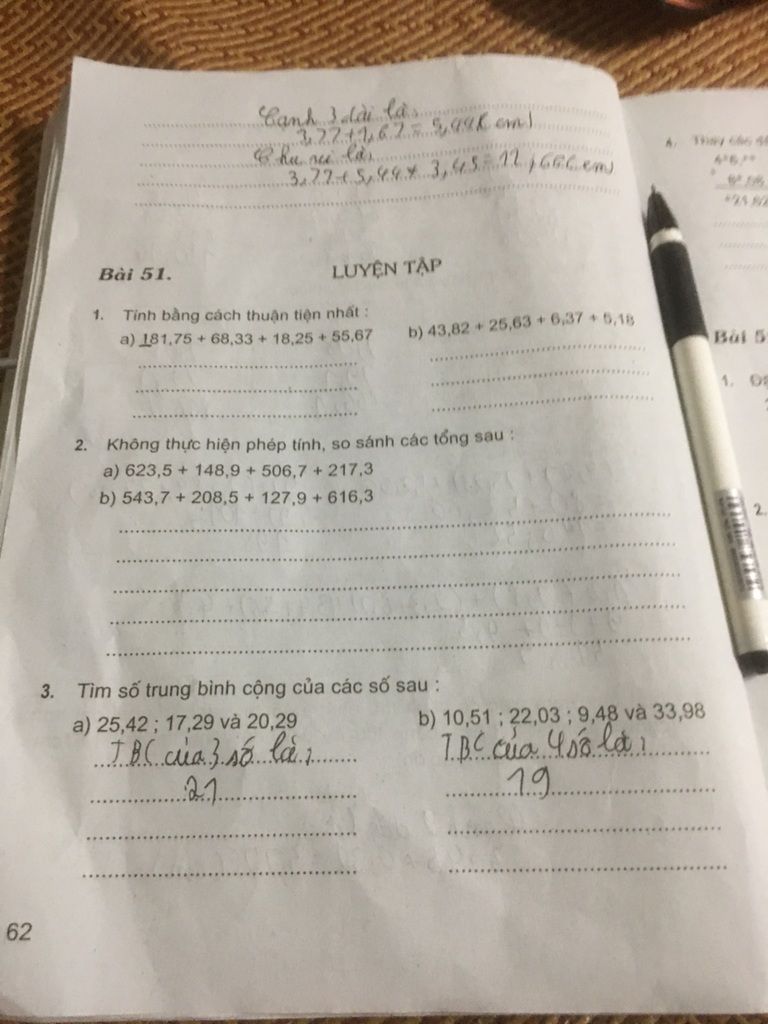 Cạnh 3 dài là:
3,77+1,67 = 5,44( cm)
Chu vi là:
3,77+5,44+ 3,45=12,66( cm)
Bài 51.
LUYỆN TẬP
1. Tính bằng cách thuận tiện nhất :
a) 181,75 + 68,33 + 18,25 + 55,67
b) 43,82 + 25,63 + 6,37 + 5,18
2. Không thực hiện phép tính, so sánh các tổng sau :
a) 623,5 + 148,9 + 506,7 + 217,3
b) 543,7 + 208,5 + 127,9 + 616,3
3. Tìm số trung bình cộng của các số sau :
a) 25,42 ; 17,29 và 20,29
b) 10,51 ; 22,03 ; 9,48 và 33,98
TBC của 3 số là:
21
TBC của 4 số là:
19
62
4. Thay các
Bài 5
1.
2.